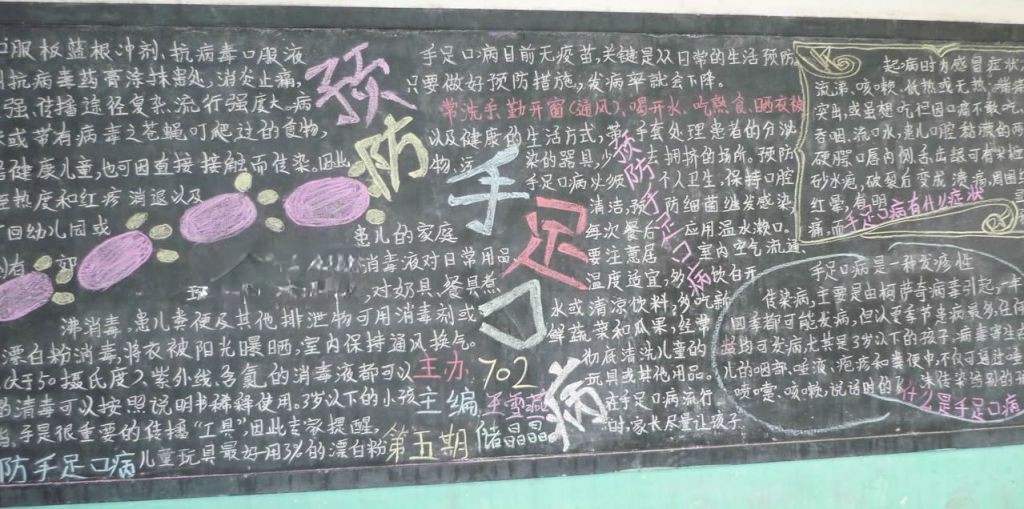 口服板蓝根冲剂、抗病毒口服液
抗病毒药膏涂抹患处,消炎止痛,
强,传播途径复杂,流行强度大。病
或带有病毒之苍蝇叮爬过的食物,
健康儿童,也可因直接接触而传染。因此
热度和红疹消退以及
回幼儿园或
患儿的家庭
消毒液对日常用品,
,对奶具、餐具煮
沸消毒,患儿粪便及其他排泄物可用消毒剂或
漂白粉消毒,将衣被阳光曝晒,室内保持通风换气。
大于50摄氏度)、紫外线、含氯的消毒液都可以
的清毒可以按照说明书稀释使用。3岁以下的小孩
手是很重要的传播“工具”,因此专家提醒,
儿童玩具最好用3%的漂白粉
防手足口病
预防手足口病
主办 702
主编
第五期 储晶晶
手足口病目前无疫苗,关键是从日常的生活预防
只要做好预防措施,发病率就会下降。
常洗手、勤开窗(通风)、喝开水、吃熟食、晒衣被
以及健康的生活方式,带手套处理患者的分泌
物,污染的器具,少去拥挤的场所。预防
手足口病必须个人卫生,保持口腔
清洁,预防细菌继发感染,
每次餐后应用温水漱口。
要注意居室内空气流通,
温度适宜,多饮白开
水或清凉饮料,多吃新
鲜蔬菜和瓜果,经常
彻底清洗儿童的
玩具或其他用品。
在手足口病流行
时,家长尽量让孩子
预防手足口病
起病时为感冒症状
流涕、咳嗽、低热或无热,
突出,或虽想吃但因口痛不敢吃,
流口水,患儿口腔粘膜的两
硬腭、口唇内侧、舌出现有米粒
砂水疱,破裂后变成溃疡,周围
红晕,有明
痛,而
手足口病有什么症状
手足口病是一种发疹性
传染病,主要是由柯萨奇病毒引起,一年
四季都可能发病,但以夏季节患病最多,任何
均可发病,尤其是3岁以下的孩子,病毒寄
儿的咽部、唾液、疱疹和粪便中,不仅可通过唾
喷嚏、咳嗽、说话时的飞沫传染给别的
什么是手足口病